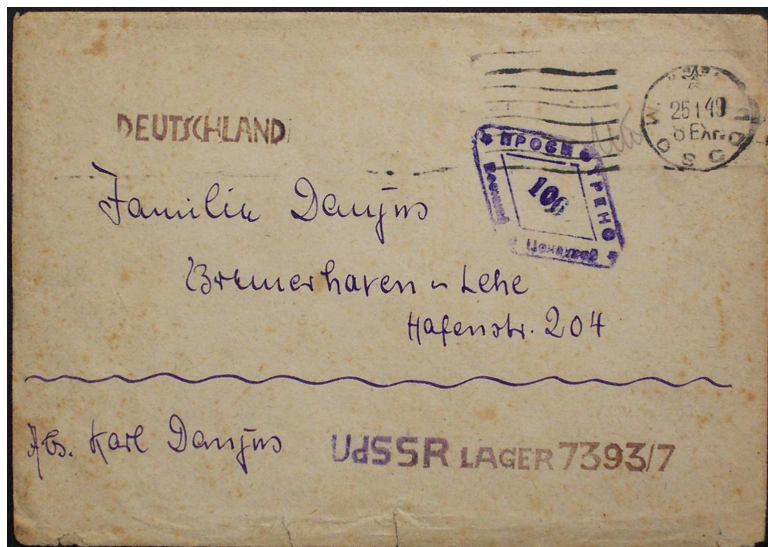 DEUTSCHLAND
25 1 49
ПРОСМОТРЕНО
106
Familie Danjus
Bremerhaven - Lehe
Hafenstr. 204
Abs. Karl Danjus
UdSSR LAGER 7393/7